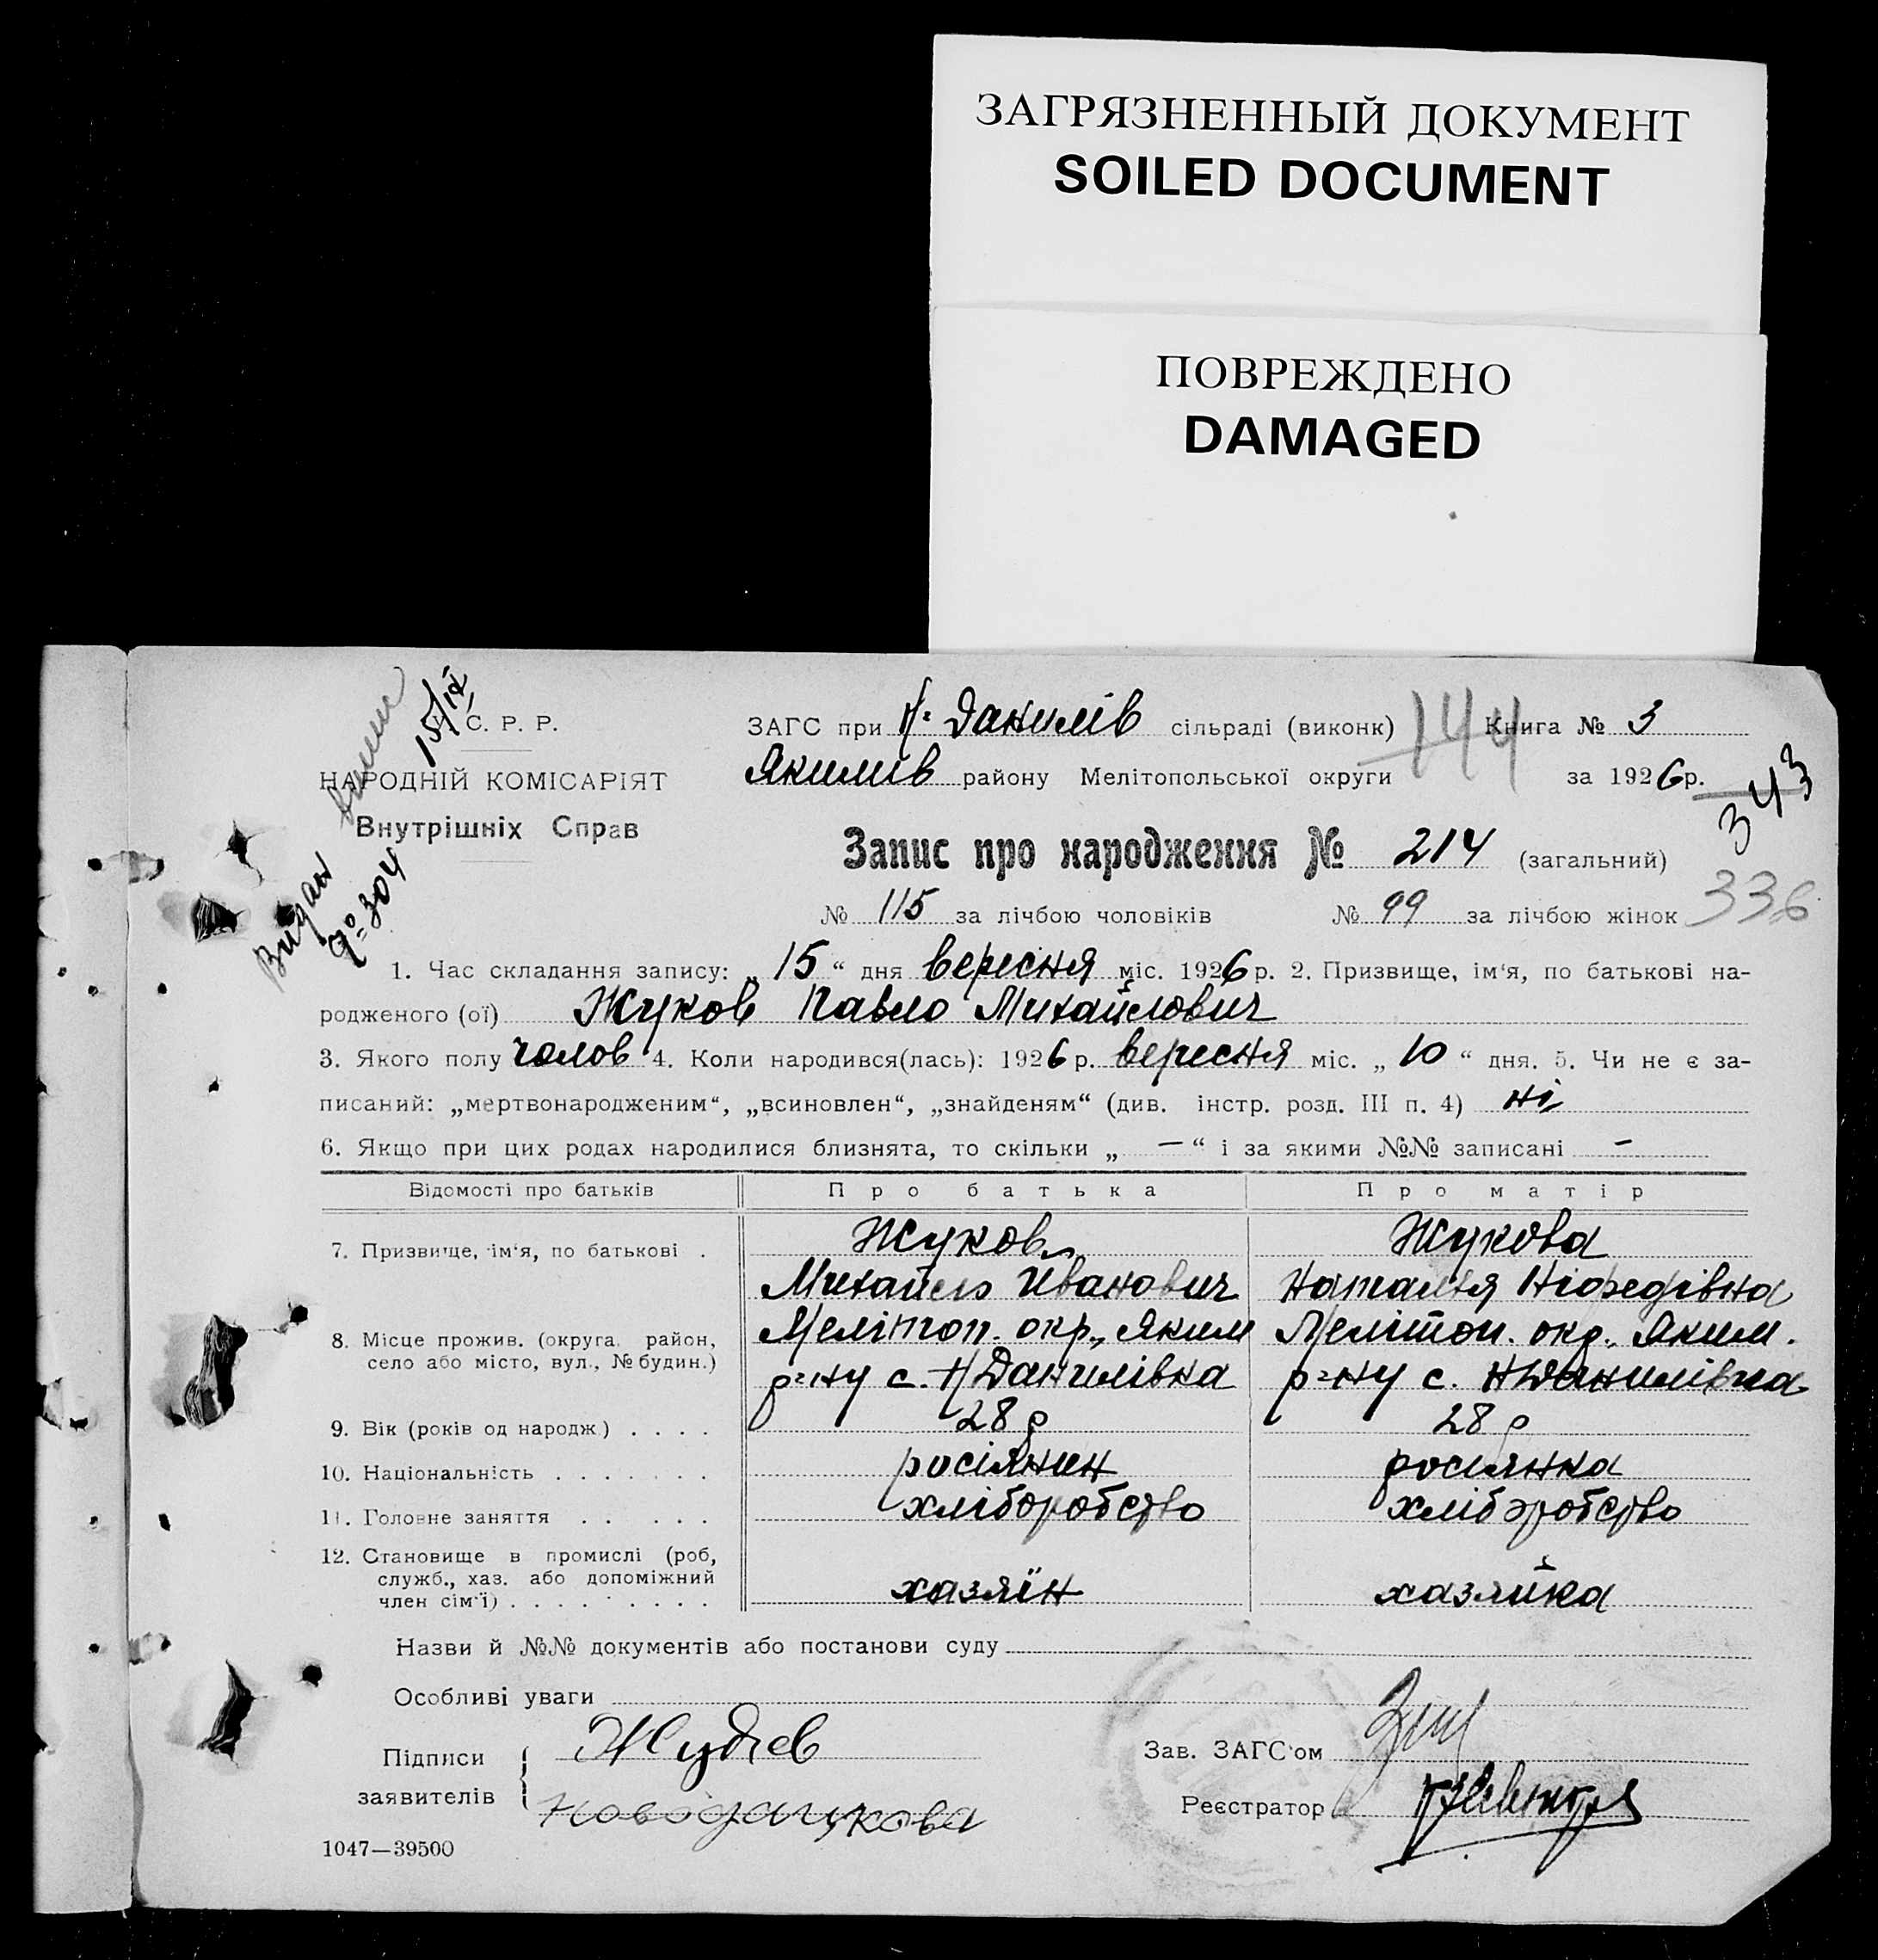 ЗАГРЯЗНЕННЫЙ ДОКУМЕНТ
SOILED DOCUMENT
ПОВРЕЖДЕНО
DAMAGED
15/IX
С. Р. Р.
НАРОДНІЙ КОМІСАРІЯТ
Внутрішніх Справ
Видан
№ 304
ЗАГС при Н-Данилів сільраді (виконк) 144 Книга № 3
Якимів району Мелітопольської округи за 1926 р.
343
Запис про народження № 214 (загальний)
№ 115 за лічбою чоловіків № 99 за лічбою жінок 336
1. Час складання запису: „15“ дня вересня міс. 1926 р. 2. Призвище, ім'я, по батькові на-
родженого (ої) Жуков Павло Михайлович
3. Якого полу чолов 4. Коли народився(лась): 1926 р. вересня міс. „10“ дня. 5. Чи не є за-
писаний: „мертвонародженим“, „всиновлен“, „знайденям“ (див. інстр. розд. III п. 4) ні
6. Якщо при цих родах народилися близнята, то скільки „ — “ і за якими №№ записані -
Відомості про батьків Про батька Про матір
7. Призвище, ім'я, по батькові . Жуков Жукова
Михайло Иванович Наталія Ніфедівна
8. Місце прожив. (округа, район, Мелітоп. окр., Яким Мелітоп. окр., Яким.
село або місто, вул., № будин.) р-ну с. Н Данилівка р-ну с. Н Данилівка
9. Вік (років од народж.) . . . . 28 р 28 р
10. Національність . . . . . . . росіянин росіянка
11. Головне заняття . . . . . хліборобство хліборобство
12. Становище в промислі (роб,
служб., хаз. або допоміжний
член сім'ї) . . . . . . . . . хазяїн хазяйка
Назви й №№ документів або постанови суду
Особливі уваги
Підписи
заявителів
Зав. ЗАГС'ом
Реєстратор
1047—39500